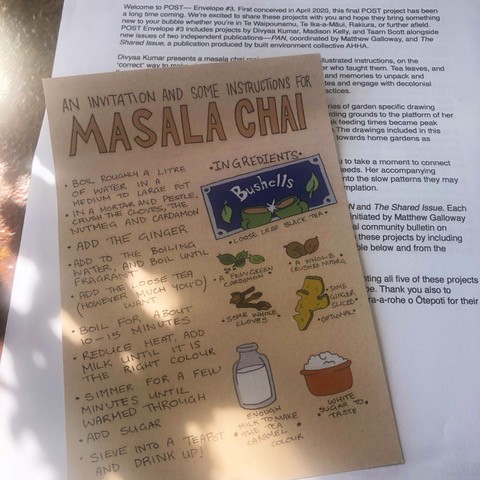 Welcome to POST— Envelope #3. First conceived in April 2020, this final POST project has been
a long time coming. We're excited to share these projects with you and hope they bring something
new to your bubble whether you're in Te Waipounamu, Te Ika-a-Māui, Rakiura, or further afield.
POST Envelope #3 includes projects by Divyaa Kumar, Madison Kelly, and Taarn Scott alongside
new issues of two independent publications—PAN, coordinated by Matthew Galloway, and The
Shared Issue, a publication produced by built environment collective AHHA.
Divyaa Kumar presents a masala chai
illustrated instructions, on the
'correct' way to
who taught them. Tea leaves, and
and memories to unpack and
and engage with decolonial
ries of garden specific drawing
rding grounds to the platform of her
k feeding times became peak
The drawings included in this
towards home gardens as
u to take a moment to connect
eeds. Her accompanying
nto the slow patterns they may
mplation.
N and The Shared Issue. Each
nitiated by Matthew Galloway
al community bulletin on
these projects by including
ble below and from the
ting all five of these projects
be. Thank you also to
ra-a-rohe o Ōtepoti for their
AN INVITATION AND SOME INSTRUCTIONS FOR
MASALA CHAI
• BOIL ROUGHLY A LITRE
OF WATER IN A
MEDIUM TO LARGE POT
IN A MORTAR AND PESTLE,
CRUSH THE CLOVES, THE
NUTMEG AND CARDAMON
• ADD THE GINGER
• ADD TO THE BOILING
WATER, AND BOIL UNTIL
FRAGRANT
• ADD THE LOOSE TEA
(HOWEVER MUCH YOU'D
WANT)
• BOIL FOR ABOUT
10-15 MINUTES
• REDUCE HEAT, ADD
MILK UNTIL IT IS
THE RIGHT COLOUR
• SIMMER FOR A FEW
MINUTES UNTIL
WARMED THROUGH
• ADD SUGAR
• SIEVE INTO A TEAPOT
AND DRINK UP!
• INGREDIENTS •
Bushells
• LOOSE LEAF BLACK TEA •
• A FEW GREEN
CARDAMON •
• A WHOLE
CRUSHED NUTMEG •
• SOME WHOLE
CLOVES •
• SOME
GINGER
SLICED •
• OPTIONAL •
ENOUGH
• MILK TO MAKE
THE TEA
CARAMEL •
COLOUR
WHITE
• SUGAR TO •
TASTE